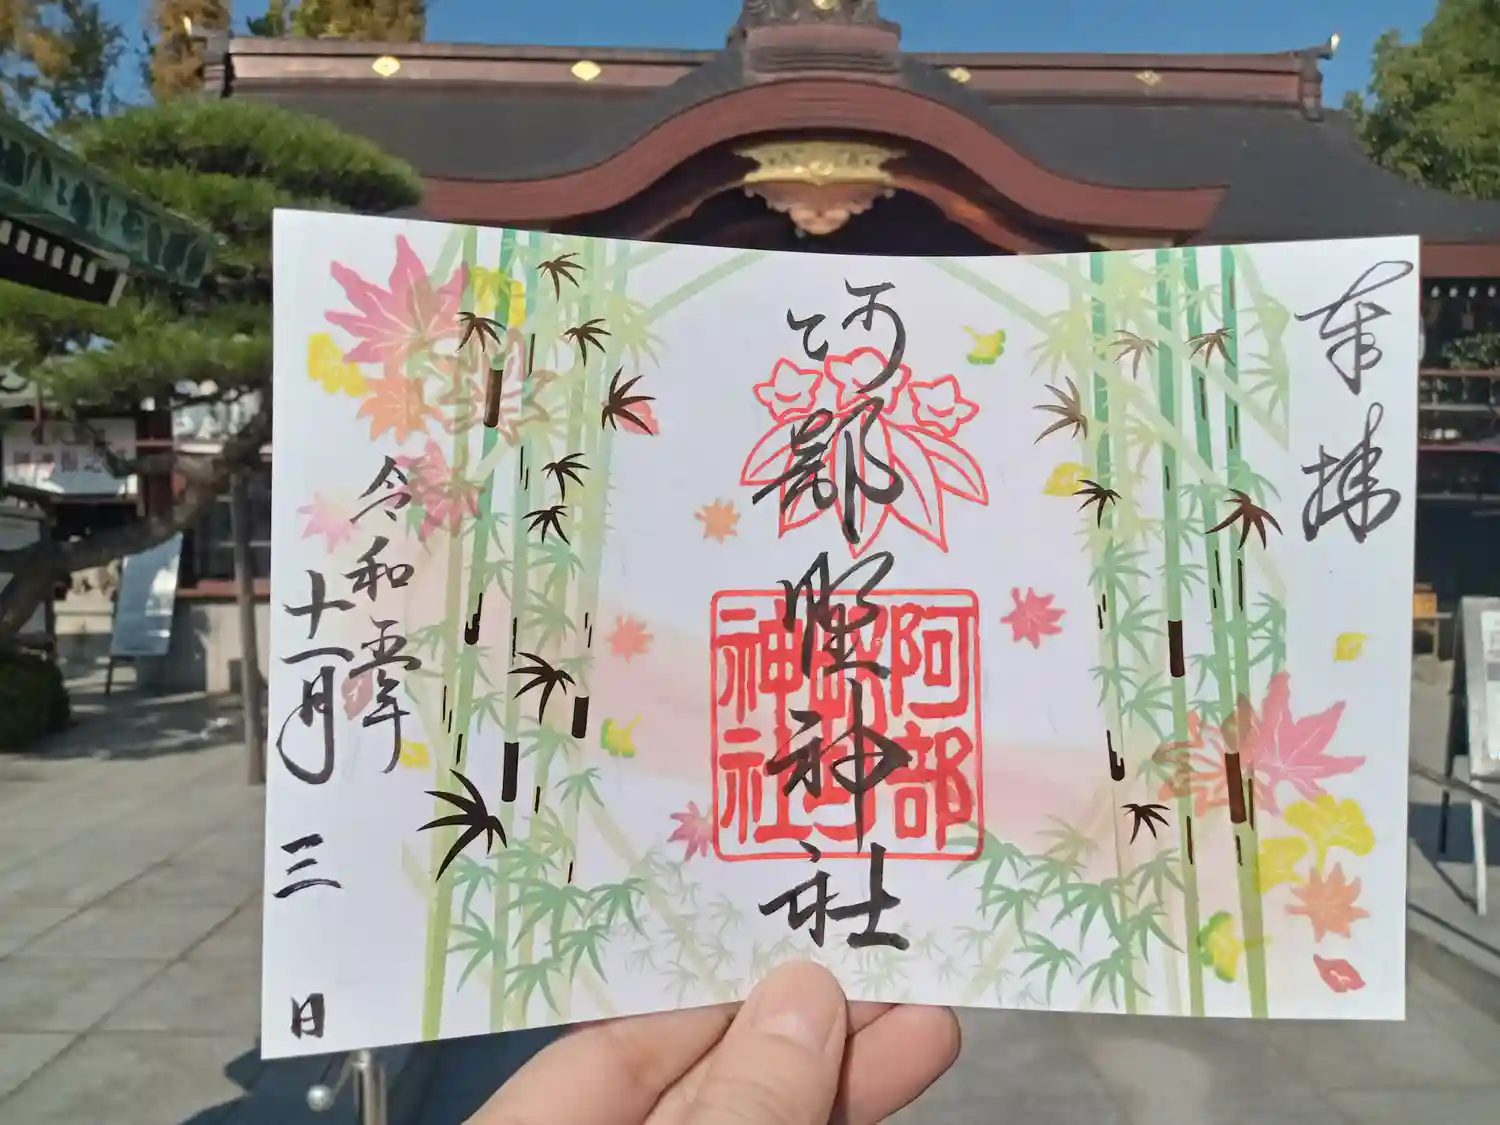 奉拝
阿部野神社
阿部
野
神社
令和五年
十一月三日